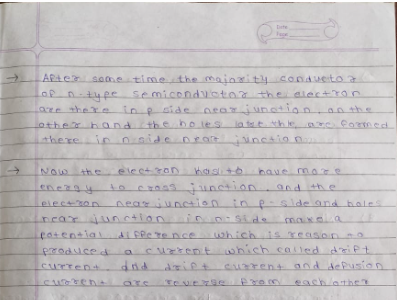 → After some time the majority conductor
of n-type semiconductor the electron
are there in p side near junction, on the
other hand the holes are formed
there in n-side near junction.
→ Now the electron has to have more
energy to cross junction, and the
electron near junction in p-side and holes
near junction in n-side make a
potential difference which is reason to
produced a current which called drift
current. and drift current and defusion
current are reverse from each other